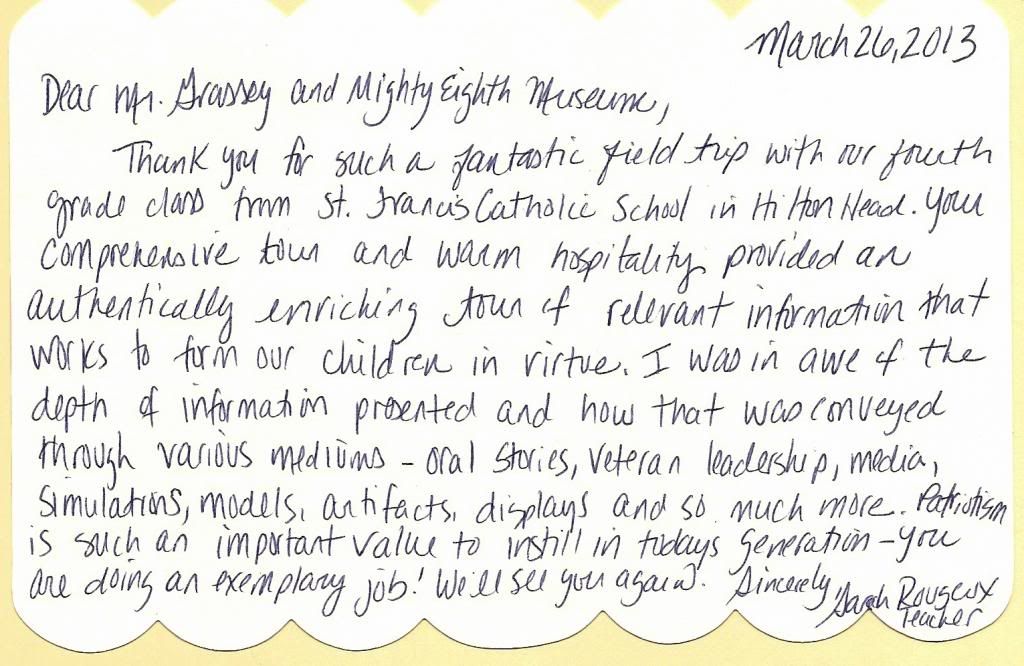 March 26, 2013
Dear Mr. Grassey and Mighty Eighth Museum,
Thank you for such a fantastic field trip with our fourth
grade class from St. Francis Catholic School in Hilton Head. Your
comprehensive tour and warm hospitality provided an
authentically enriching tour of relevant information that
works to form our children in virtue. I was in awe of the
depth of information presented and how that was conveyed
through various mediums - oral stories, veteran leadership, media,
simulations, models, artifacts, displays and so much more. Patriotism
is such an important value to instill in todays generation - you
are doing an exemplary job! We'll see you again! Sincerely,
Sarah Rougeux
Teacher